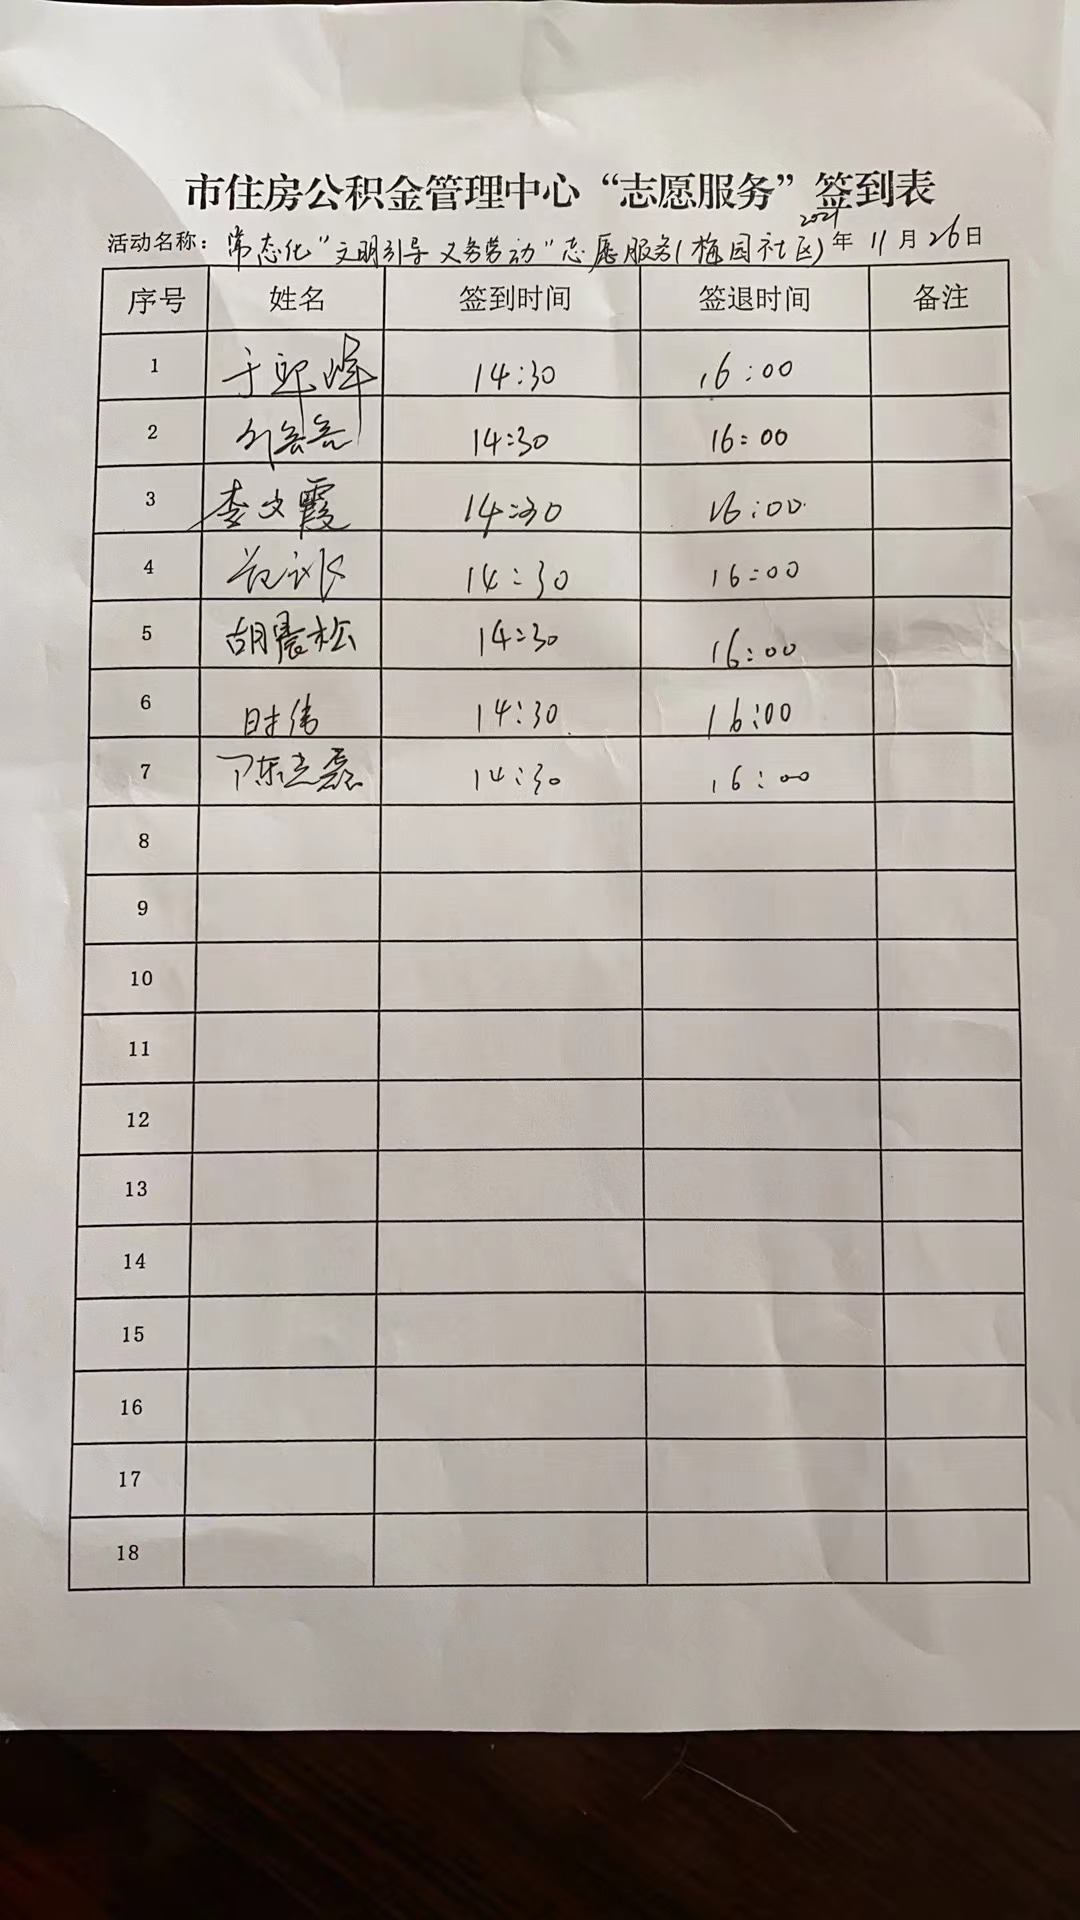 市住房公积金管理中心“志愿服务”签到表
活动名称：常态化“文明引导 义务劳动”志愿服务(梅园社区) 2021年 11月26日
序号 姓名 签到时间 签退时间 备注
1 于 14:30 16:00
2 14:30 16:00
3 李文霞 14:30 16:00
4 14:30 16:00
5 胡晨松 14:30 16:00
6 时伟 14:30 16:00
7 14:30 16:00
8
9
10
11
12
13
14
15
16
17
18